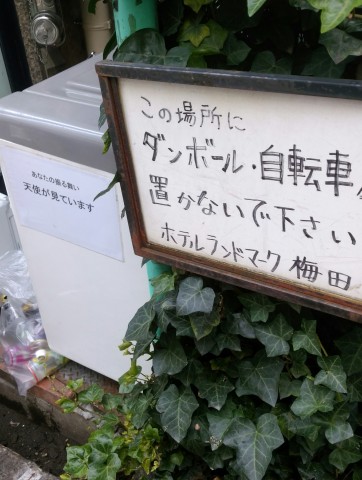 あなたの振る舞い
天使が見ています
この場所に
ダンボール・自転車
置かないで下さい
ホテルランドマーク梅田